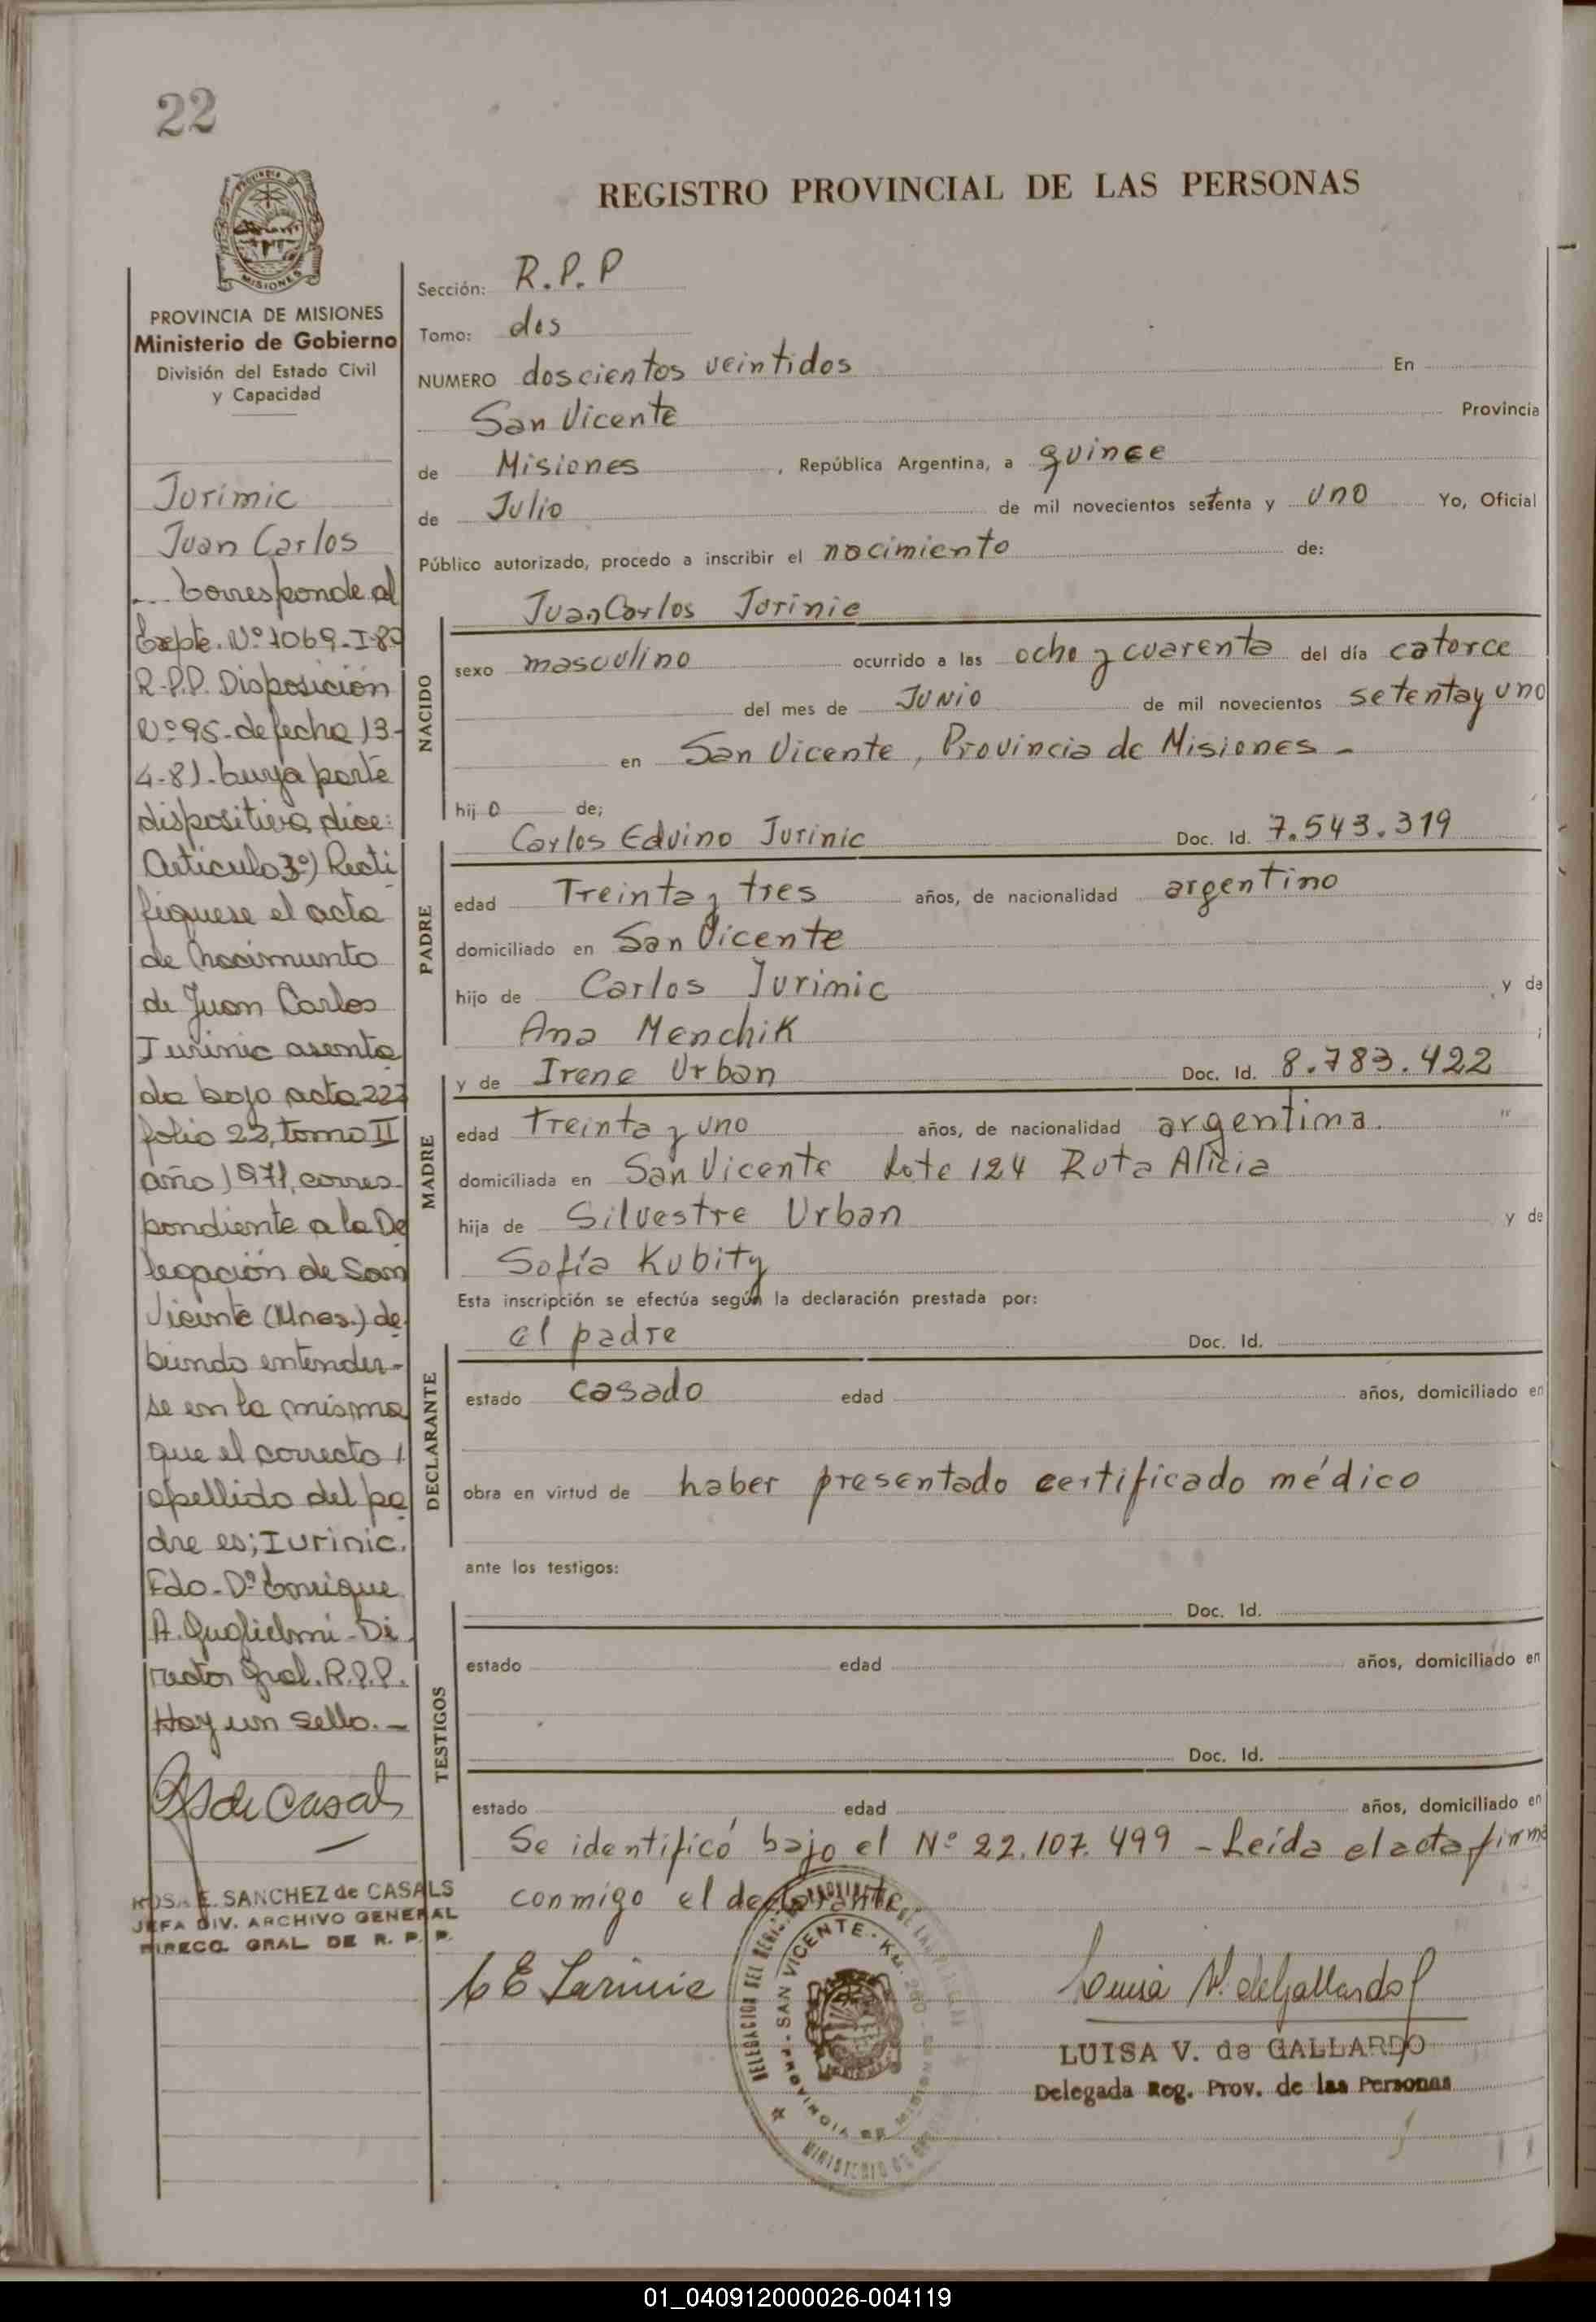 22
REGISTRO PROVINCIAL DE LAS PERSONAS
MISIONES
PROVINCIA DE MISIONES
Ministerio de Gobierno
División del Estado Civil
y Capacidad
Jurimic
Juan Carlos
Corresponde al
Expte. Nº 1069-I-80
R.P.P. Disposición
Nº 95- de fecha 13-
4-81- cuya parte
dispositiva dice:
Artículo 3º) Recti
fíquese el acta
de nacimiento
de Juan Carlos
Jurinic asenta
da bajo acta 222
folio 22, tomo II
año 1971, corres-
pondiente a la De
legación de San
Vicente (Mnes.) de
biendo entender-
se en la misma
que el correcto
apellido del pa
dre es; Iurinic.
Fdo- Dº Enrique
A. Guglielmi- Di
rector Gral. R.P.P.
Hay un sello.-
RS de Casals
ROSA E. SANCHEZ de CASALS
JEFA DIV. ARCHIVO GENERAL
DIRECC. GRAL DE R. P. P.
Sección: R.P.P
Tomo: dos
NUMERO doscientos veintidos En
San Vicente Provincia
de Misiones, República Argentina, a quince
de Julio de mil novecientos setenta y uno Yo, Oficial
Público autorizado, procedo a inscribir el nacimiento de:
Juan Carlos Jurinic
NACIDO
sexo masculino ocurrido a las ocho y cuarenta del día catorce
del mes de Junio de mil novecientos setenta y uno
en San Vicente, Provincia de Misiones -
hijo de;
Carlos Eduino Jurinic Doc. Id. 7.543.319
PADRE
edad Treinta y tres años, de nacionalidad argentino
domiciliado en San Vicente
hijo de Carlos Jurimic y de
Ana Menchik;
y de Irene Urban Doc. Id. 8.783.422
MADRE
edad Treinta y uno años, de nacionalidad argentina.
domiciliada en San Vicente Lote 124 Ruta Alicia
hija de Silvestre Urban y de
Sofía Kubity
Esta inscripción se efectúa según la declaración prestada por:
el padre Doc. Id.
DECLARANTE
estado casado edad años, domiciliado en
obra en virtud de haber presentado certificado médico
ante los testigos:
Doc. Id.
TESTIGOS
estado edad años, domiciliado en
Doc. Id.
estado edad años, domiciliado en
Se identificó bajo el Nº 22.107.499 - Leída el acta firma
conmigo el declarante
C E Iurinic
SAN VICENTE - KM.
PROVINCIA DE MISIONES
Luisa V. de Gallardo
LUISA V. de GALLARDO
Delegada Reg. Prov. de las Personas
01_040912000026-004119